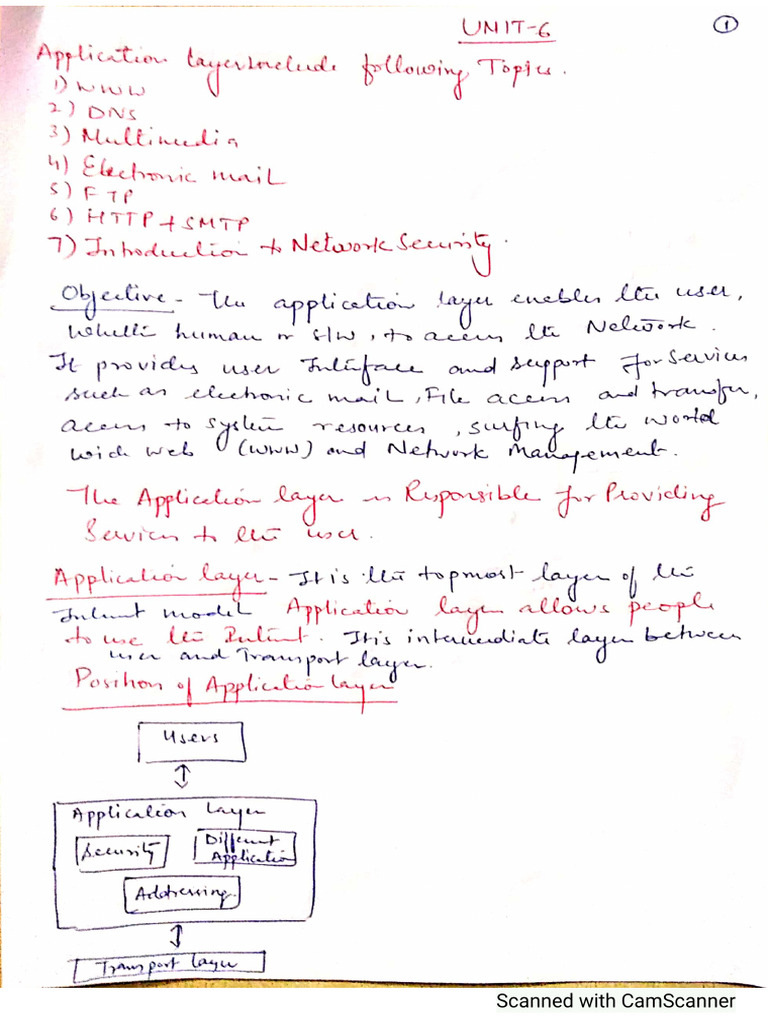 UNIT-6
1
Application Layer Include following Topics.
1) WWW
2) DNS
3) Multimedia
4) Electronic mail
5) FTP
6) HTTP + SMTP
7) Introduction to Network Security.
Objective - The application layer enables the user,
whether human or S/W, to access the Network.
It provides user Interface and support for services
such as electronic mail, File access and transfer,
access to system resources, surfing the world
wide web (WWW) and Network Management.
The Application layer is Responsible for Providing
Services to the user.
Application layer - It is the topmost layer of the
Internet model Application layer allows people
to use the Internet. It is intermediate layer between
user and Transport layer.
Position of Application layer
Users
Application Layer
Security
Different
Application
Addressing
Transport layer
Scanned with CamScanner